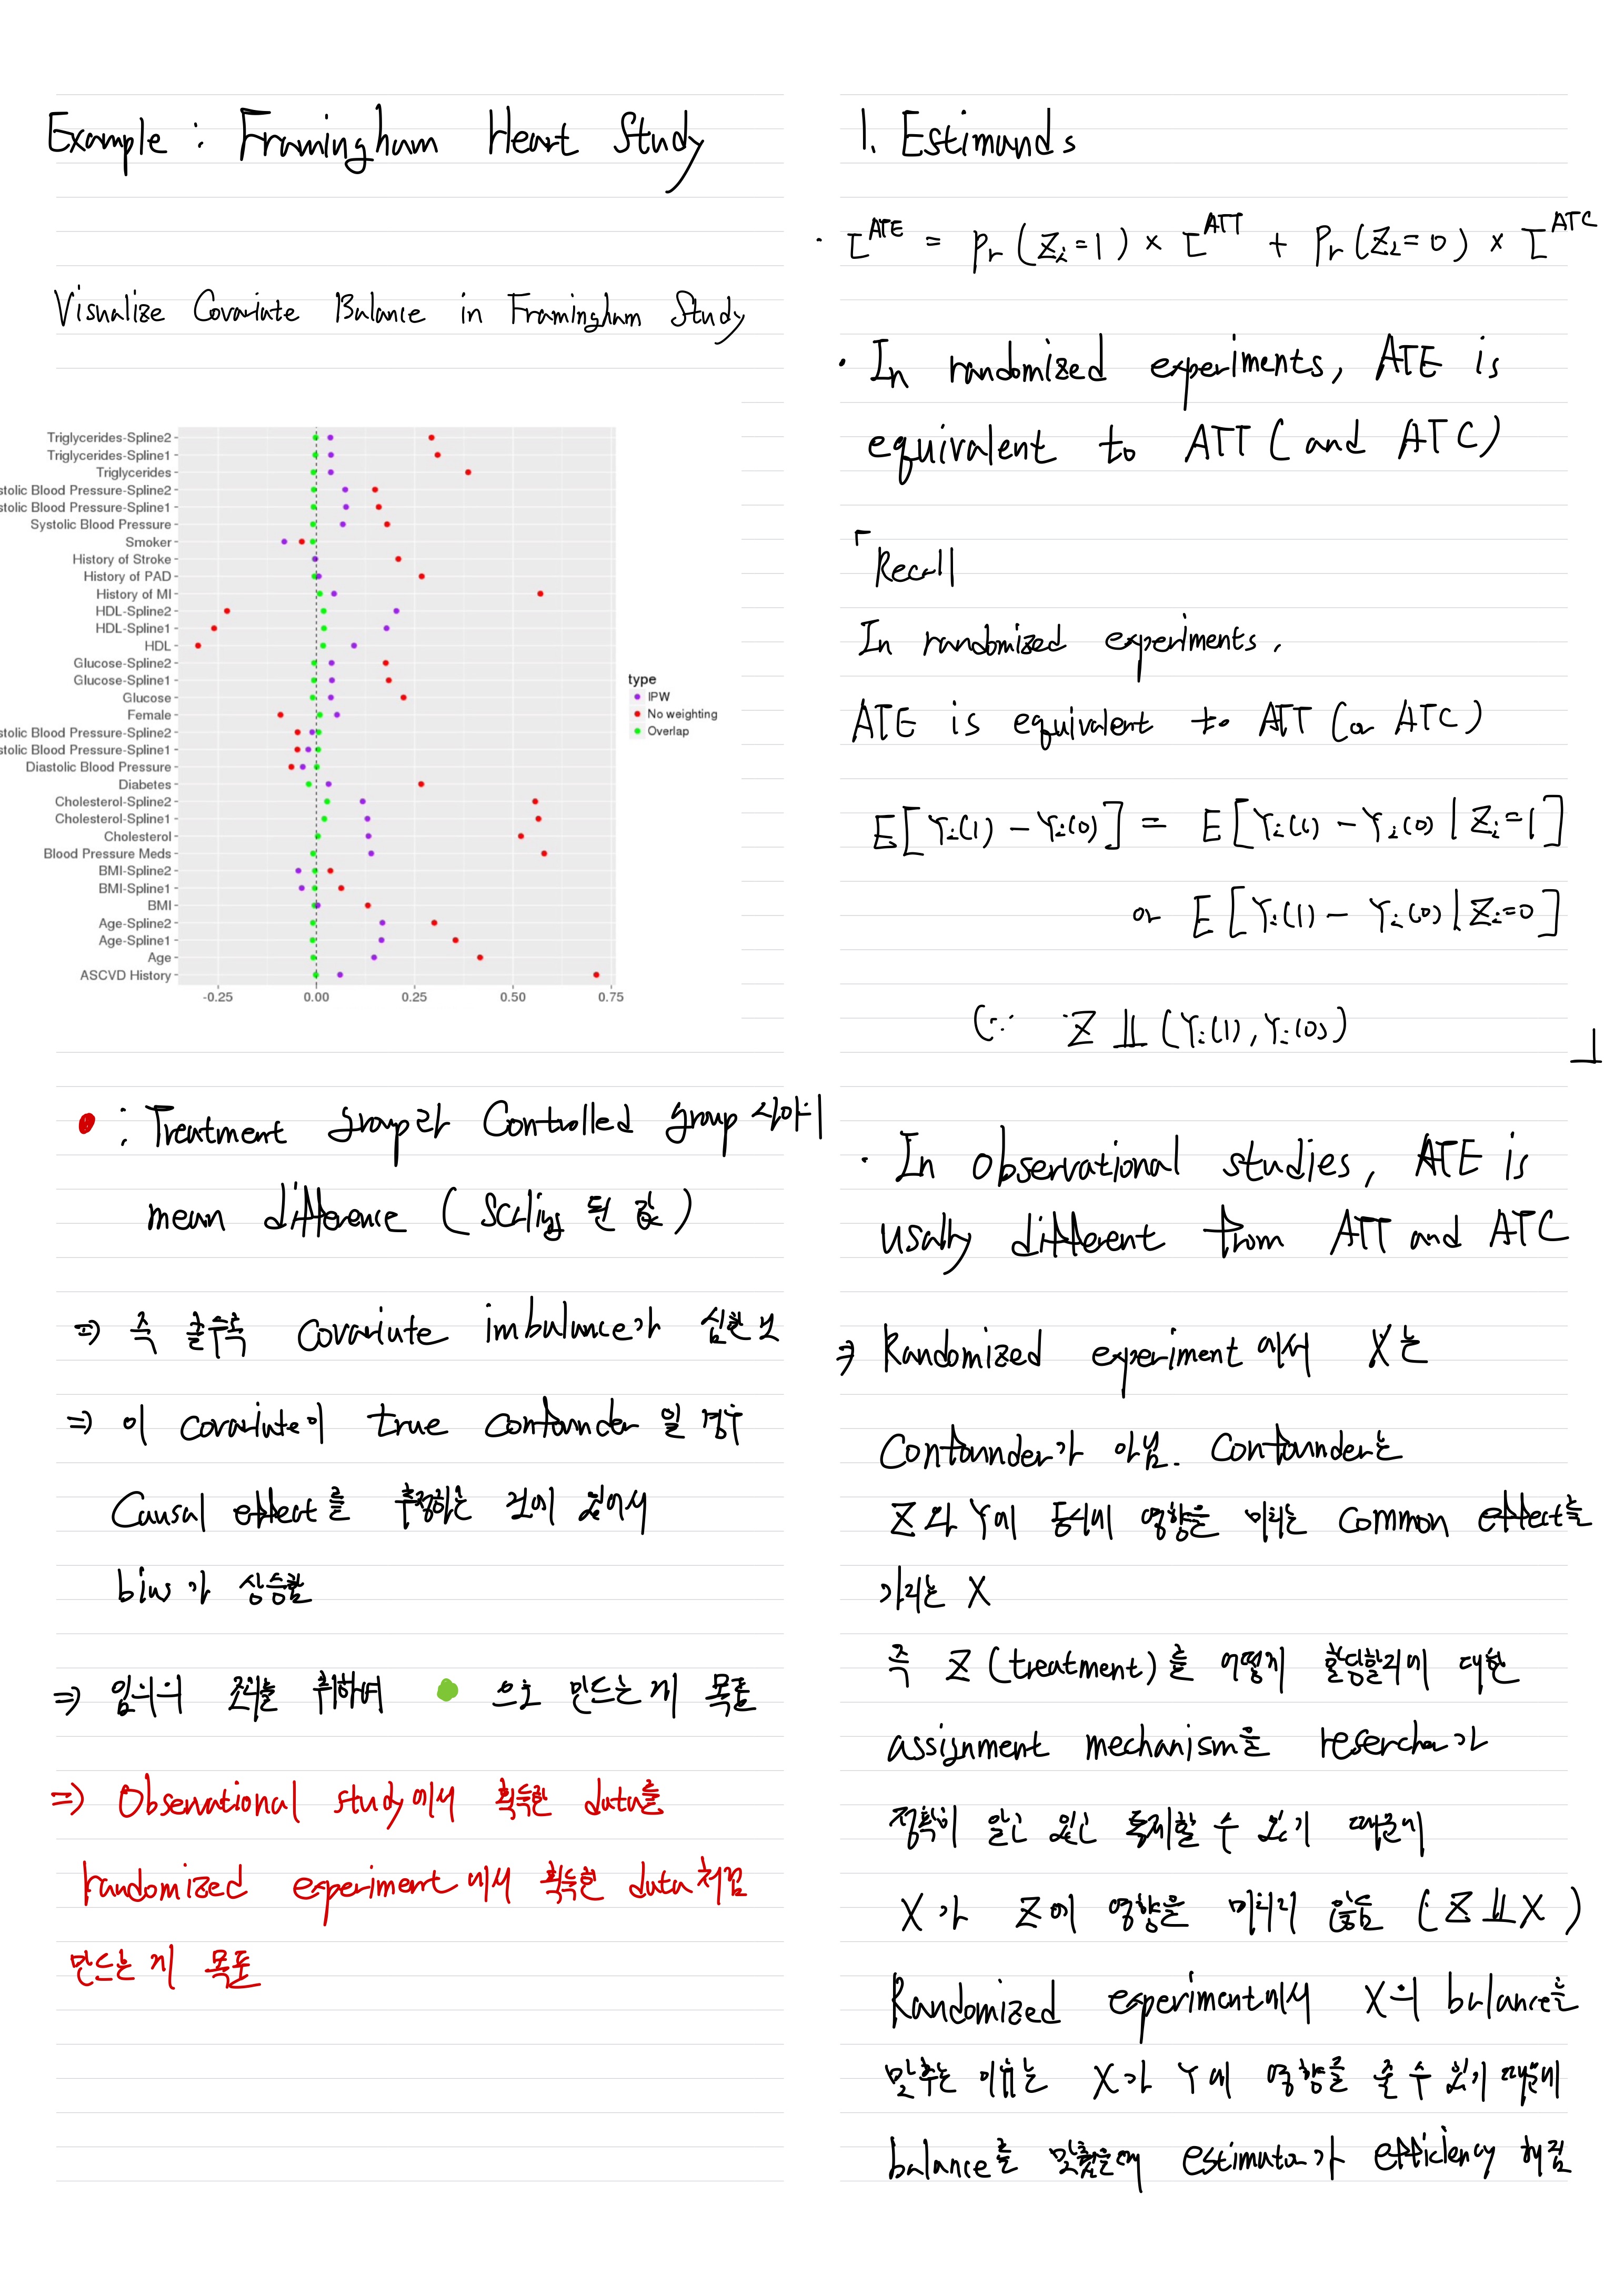 Example : Framingham Heart Study
Visualize Covariate Balance in Framingham Study
Triglycerides-Spline2
Triglycerides-Spline1
Triglycerides
stolic Blood Pressure-Spline2
stolic Blood Pressure-Spline1
Systolic Blood Pressure
Smoker
History of Stroke
History of PAD
History of MI
HDL-Spline2
HDL-Spline1
HDL
Glucose-Spline2
Glucose-Spline1
Glucose
Female
stolic Blood Pressure-Spline2
stolic Blood Pressure-Spline1
Diastolic Blood Pressure
Diabetes
Cholesterol-Spline2
Cholesterol-Spline1
Cholesterol
Blood Pressure Meds
BMI-Spline2
BMI-Spline1
BMI
Age-Spline2
Age-Spline1
Age
ASCVD History
-0.25 0.00 0.25 0.50 0.75
type
IPW
No weighting
Overlap
: Treatment group과 Controlled group 사이의
mean difference ( Scaling 된 값 )
⇒ 즉 클수록 Covariate imbalance가 심한 것
⇒ 이 covariate이 true confounder 일 경우
Causal effect를 추정하는 것에 있어서
bias가 상승함
⇒ 임의의 조치를 취하여 으로 만드는 게 목표
⇒ Observational study에서 획득한 data를
randomized experiment에서 획득한 data처럼
만드는 게 목표
1. Estimands
· τ^ATE = Pr (Zi=1) × τ^ATT + Pr (Zi=0) × τ^ATC
· In randomized experiments, ATE is
equivalent to ATT ( and ATC )
「Recall
In randomized experiments,
ATE is equivalent to ATT (or ATC)
E[Yi(1) − Yi(0)] = E[Yi(1) − Yi(0) | Zi=1]
or E[Yi(1) − Yi(0) | Zi=0]
(∵ Z ⫫ (Yi(1), Yi(0)) 」
· In observational studies, ATE is
usally different from ATT and ATC
⇒ Randomized experiment에서 X는
Confounder가 아님. Confounder는
Z와 Y에 동시에 영향을 미치는 common effect를
가지는 X
즉 Z (treatment)를 어떻게 할당할지에 대한
assignment mechanism을 resercher가
정확히 알고 있고 통제할 수 있기 때문에
X가 Z에 영향을 미치지 않음 (Z ⫫ X)
Randomized experiment에서 X의 balance를
맞추는 이유는 X가 Y에 영향을 줄 수 있기 때문에
balance를 맞췄을때 estimator가 efficiency 해짐